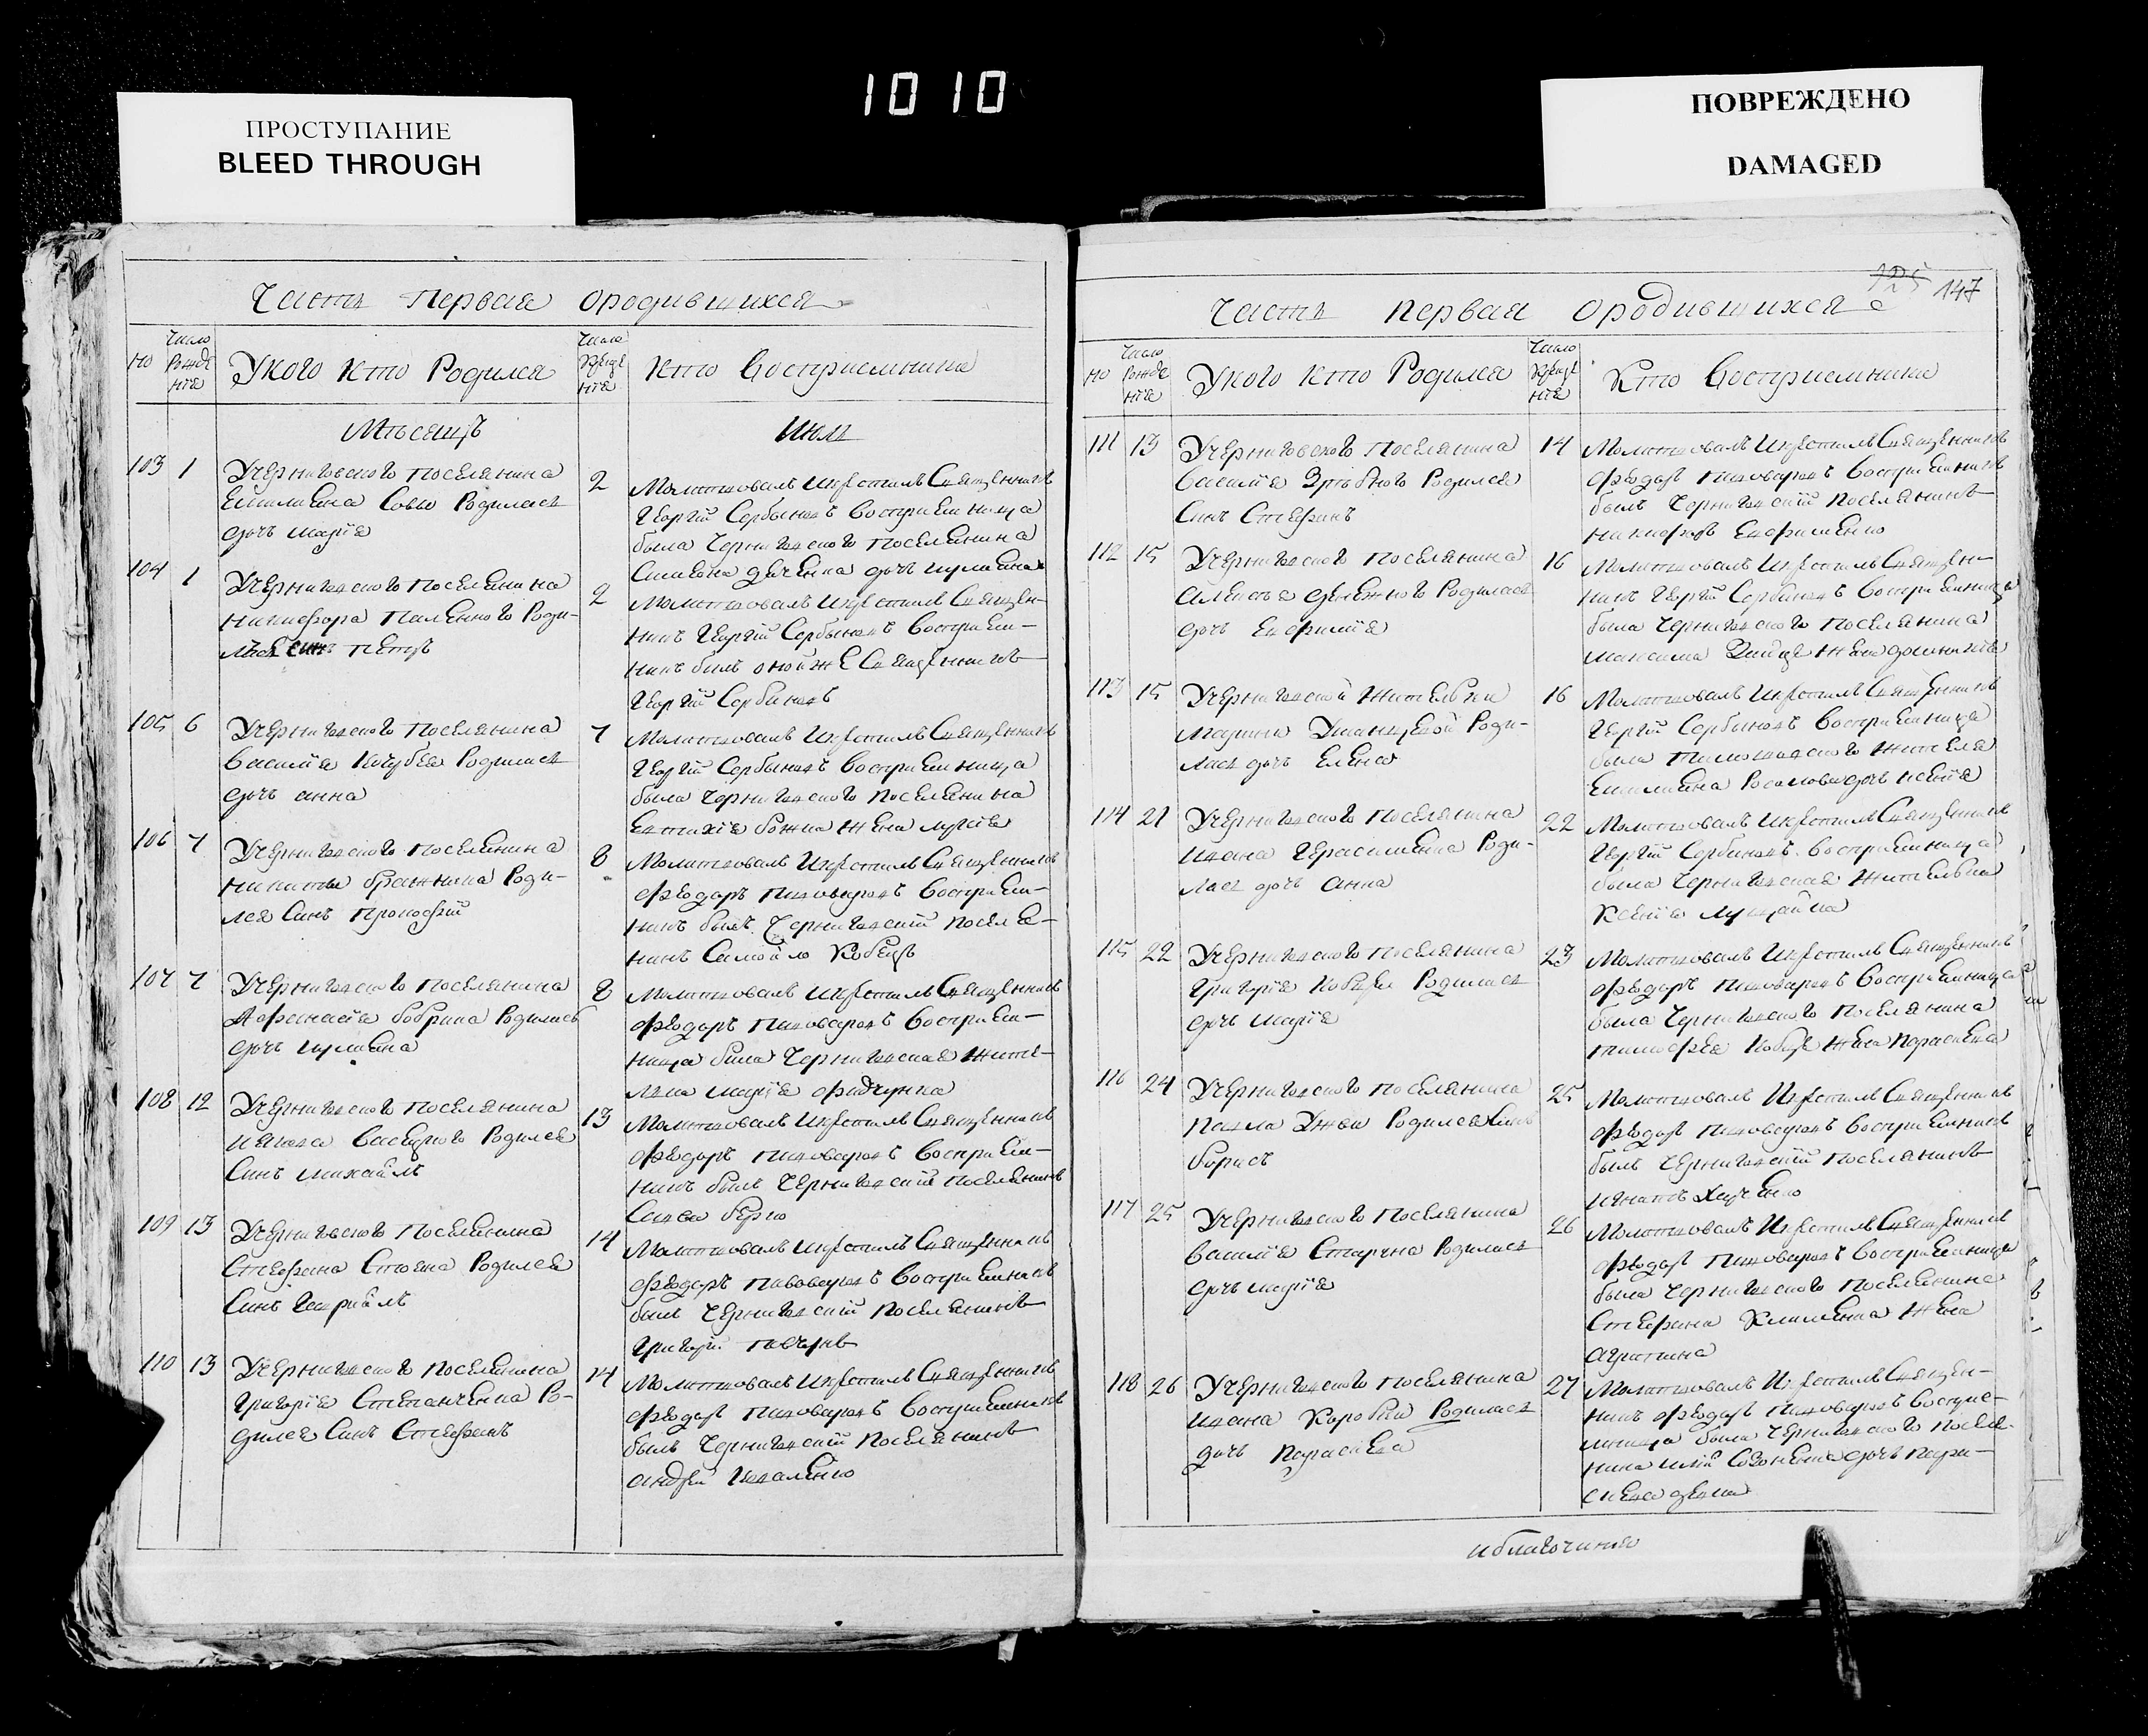 1010
ПРОСТУПАНИЕ
BLEED THROUGH
ПОВРЕЖДЕНО
DAMAGED
Часть Первая ородившихся
Но
Число Рожде нїя
Укого кто Родился
Число Креще нїя
Кто Восприемники
Мѣсяцъ
Июль
103 1
Учерниговского поселянина
Емилияна Совы Родилась
дочь марїя
2
Молитвовалъ икрестилъ Священникъ
Георгїй Сербиновъ Восприемница
была Черниговского поселянина
Симеона дяченка дочь иулияна
104 1
Учерниговского поселянина
никифора Паленного Роди-
лся Синъ петръ
2
Молитвовалъ икрестилъ Священ-
никъ Георгїй Сербиновъ Восприем-
никъ билъ онойже Священникъ
Георгїй Сербиновъ
105 6
Учерниговского поселянина
василїя Кочубея Родилась
дочь анна
7
Молитвовалъ икрестилъ Священникъ
Георгїй Сербиновъ Восприемница
была Черниговского поселянина
Евтихїя божка жена
106 7
Учерниговского поселянина
никиты бражника Роди-
лся Синъ прокофїй
8
Молитвовалъ икрестилъ Священникъ
фѣодоръ пивоваровъ Восприем-
никъ былъ Черниговскїй поселя-
нинъ Самойло Кобецъ
107 7
Учерниговского поселянина
Афанасїя бобрика Родилась
дочь иулияна
8
Молитвовалъ икрестилъ Священникъ
фѣодоръ пивоваровъ Восприем-
ница била Черниговская жите-
лка марїя
108 12
Учерниговского поселянина
Родился
Синъ михайлъ
13
Молитвовалъ икрестилъ Священникъ
фѣодоръ пивоваровъ Восприем-
никъ былъ Черниговскїй поселянинъ
Савва
109 13
Учерниговского поселянина
Стефана Стояна Родился
Синъ Гаврїилъ
14
Молитвовалъ икрестилъ Священникъ
фѣодоръ пивоваровъ Восприемникъ
былъ Черниговскїй поселянинъ
Григорїй
110 13
Учерниговского поселянина
Григорїя Степанченка Ро-
дился Синъ Стефанъ
14
Молитвовалъ икрестилъ Священникъ
фѣодоръ пивоваровъ Восприемникъ
былъ Черниговскїй поселянинъ
андрей Коваленко
125 147
Часть первая ородившихся
Но
Число Рожде нїя
Укого кто Родился
Число Креще нїя
Кто Восприемники
111 13
Учерниговского поселянина
василїя Родился
Синъ Стефанъ
14
Молитвовалъ икрестилъ Священникъ
фѣодоръ пивоваровъ Восприемникъ
былъ Черниговскїй поселянинъ
никифоръ Ефименко
112 15
Учерниговского поселянина
алексѣя Родилась
дочь Евфимїя
16
Молитвовалъ икрестилъ Священ-
никъ Георгїй Сербиновъ Восприемница
была Черниговского поселянина
максима жена домникїя
113 15
Учерниговской жителки
марины Роди-
лась дочь Елена
16
Молитвовалъ икрестилъ Священникъ
Георгїй Сербиновъ Восприемница
была жителя
Емилияна дочь ксенїя
114 21
Учерниговского поселянина
ивана Герасименка Роди-
лась дочь анна
22
Молитвовалъ икрестилъ Священникъ
Георгїй Сербиновъ Восприемница
была Черниговская жителька
Ксенїя
115 22
Учерниговского поселянина
Григорїя Кобця Родилась
дочь марїя
23
Молитвовалъ икрестилъ Священникъ
фѣодоръ пивоваровъ Восприемница
была Черниговского поселянина
тимофея Кобця жена параскева
116 24
Учерниговского поселянина
павла Родился Синъ
борисъ
25
Молитвовалъ икрестилъ Священникъ
фѣодоръ пивоваровъ Восприемникъ
былъ Черниговскїй поселянинъ
игнатъ
117 25
Учерниговского поселянина
василїя Старика Родилась
дочь марїя
26
Молитвовалъ икрестилъ Священникъ
фѣодоръ пивоваровъ Восприемница
была Черниговского поселянина
Стефана Клименка жена
агрипина
118 26
Учерниговского поселянина
ивана Коробки Родилась
дочь параскева
27
Молитвовалъ икрестилъ Священ-
никъ фѣодоръ пивоваровъ Воспрїе-
мница была Черниговского поселя-
нина дочь пара-
скева
иблагочинїя